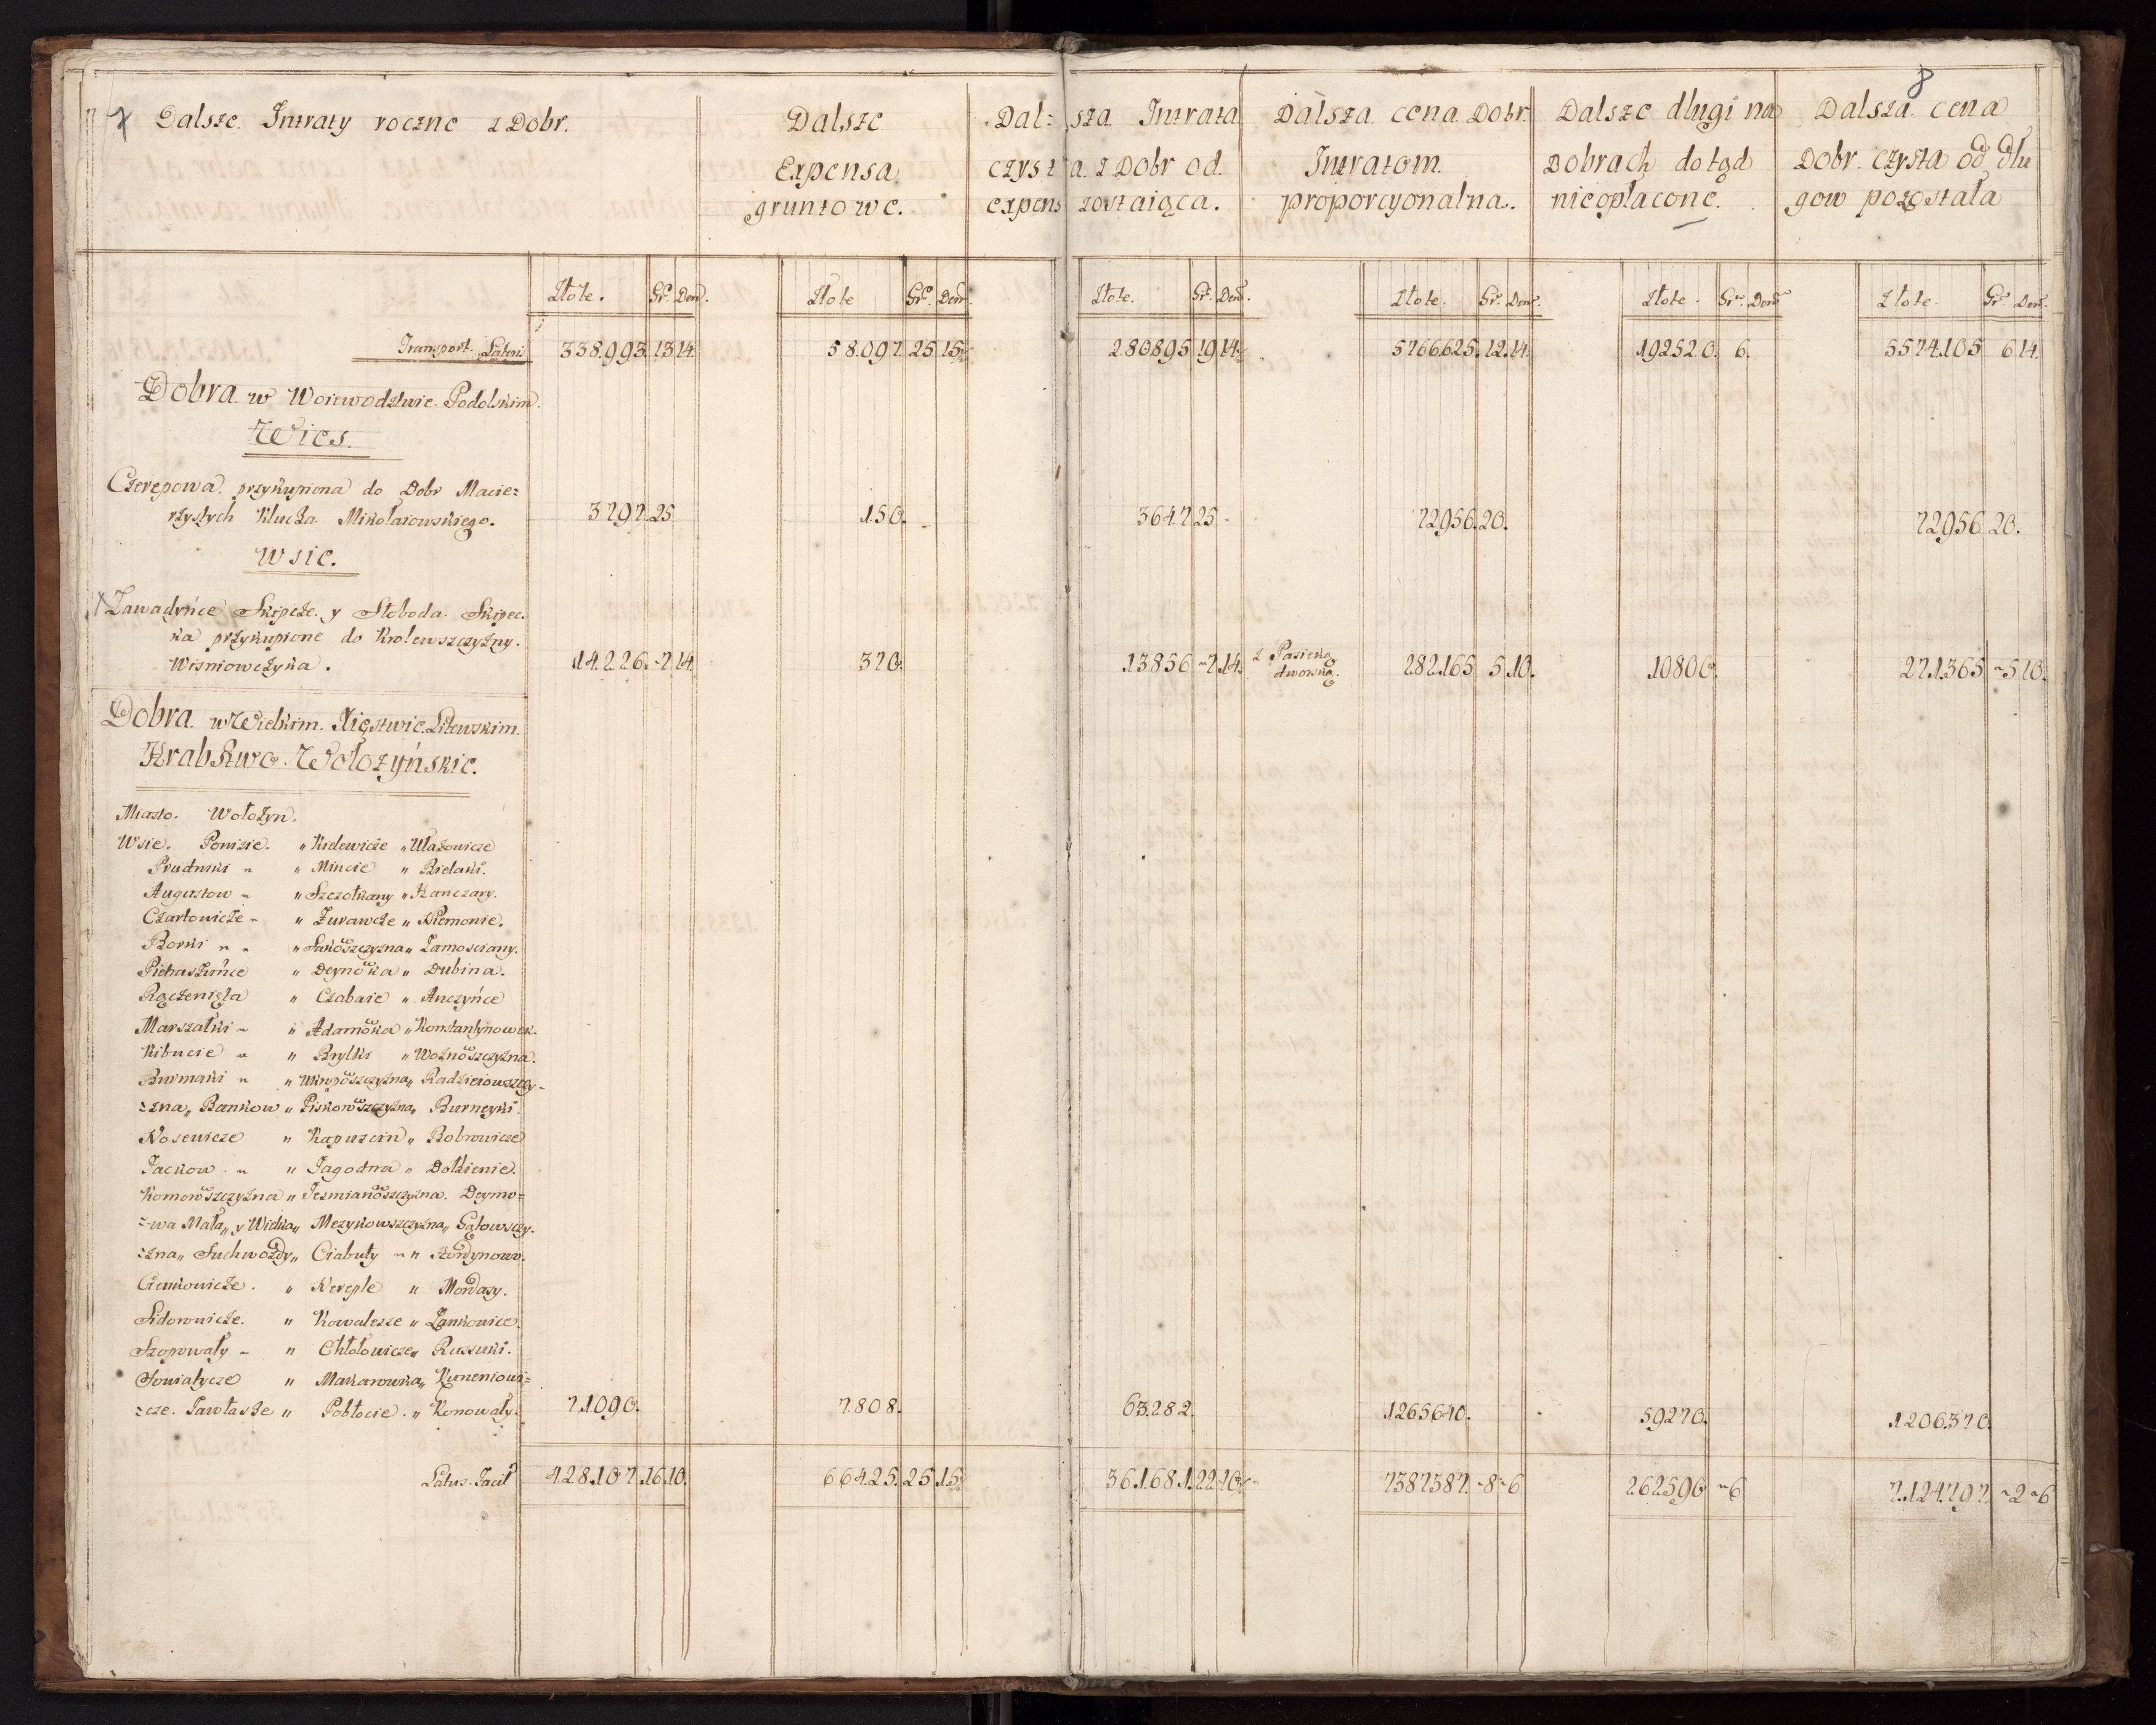 7 8
Dalsze Intraty roczne z Dobr.
Dalsze
Expensa
gruntowe.
Dal= sza Intrata
czysta z Dobr od
expens zostaiąca.
Dalsza cena Dobr
Intratom
proporcyonalna.
Dalsze długi na
Dobrach dotąd
nieopłacone.
Dalsza cena
Dobr czysta od dłu
gow pozostała
Złote. Gr. Den. Złote Gr. Den. Złote. Gr. Den. Złote. Gr. Den. Złote. Gr. Den. Złote. Gr. Den.
Transport Lateris 338.993 13 14. 58.097. 25 15 280895 19 14 5766.625. 12. 14. 192520. 6. 5574.105 6 14.
Dobra w Woiewodztwie Podolskim.
Wies.
Czerepowa przykupiona do Dobr Macie=
rzystych Klucza Mikołaiowskiego. 3797. 25 150. 3647 25 72956. 20. 72956 20.
Wsie.
Zawadyńce Skipcze y Słoboda Skipec.
ka przykupione do Krolewszczyzny
Wisniowczyka. 14.226. 7 14. 370. 13856 7. 14. z Pasieką dworną. 282.165 5 10. 10800. 271.365 5 10.
Dobra w Wielkim Xięstwie Litewskim.
Hrabstwo Wołożyńskie.
Miasto. Wołożyn.
Wsie. Ponizie. " Kidewicze " Ułazowicze
Prudniki " " Mincie " Bielaki.
Augustow " " Szczotkany " Kanczany.
Czartowicze " " Zurawcze " Niemonie.
Borki " " " Sakowszczyzna " Zamosciany.
Pichaszince " Deynowka " Dubina.
Rączenięta " Czabaie " Anczyńce
Marszałki " " Adamowka " Konstantynowka.
Kibucie " " Brylki " Woznowszczyzna.
Burmaki " " Ukropowszczyzna " Radzieiowszczy=
=zna " Bankow " Piskorowszczyzna " Burneyki.
Nosewicze " Kapuscin " Bobrowicze
Jackow. " " Jagodna " Dołzienie.
Komorowszczyzna " Jesmianowszczyzna. Deymo=
=wa Mała " y Wielka " Mezykowszczyzna " Gałowszczy.
=zna " Suchwozdy " Ciabuty " " Kordynowo.
Cienkowicze. " Nereple " Mordasy.
Sidorowicze. " Kowalesze " Zankowice.
Szopowały " " Chłołowicze " Russuki.
Sowiatycze " Makarowka " Kuneniowi=
=cze. Jawtasze " Pobłocie. " Konowały. 71090. 7.808. 63.282. 1265640. 59270. 1206370.
Latus Facit 428.107. 16. 10. 66425. 25 15 361.681. 22 10 7387387. 8 6 262590 6 7.124.797. 2 6